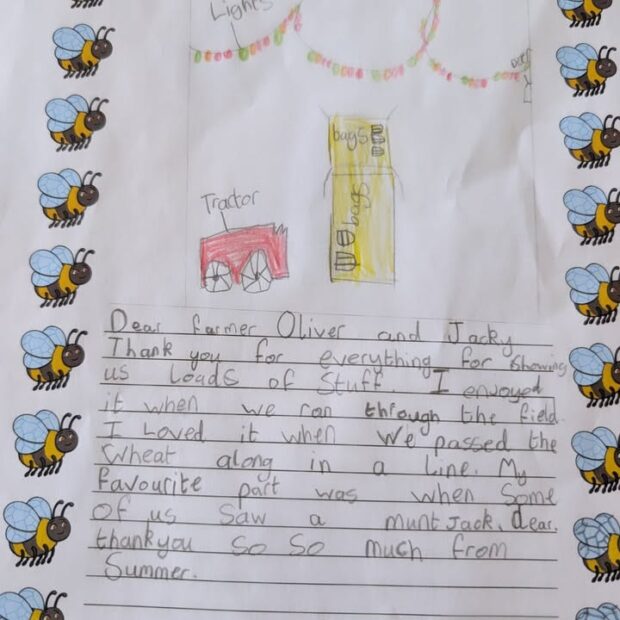 Lights
Door
bags
bags
Tractor
Dear farmer Oliver and Jacky
Thank you for everything for showing
us Loads of Stuff. I enjoyed
it when we ran through the field.
I Loved it when we passed the
wheat along in a Line. My
favourite part was when Some
of us Saw a munt Jack dear.
thankyou So So much from
Summer.